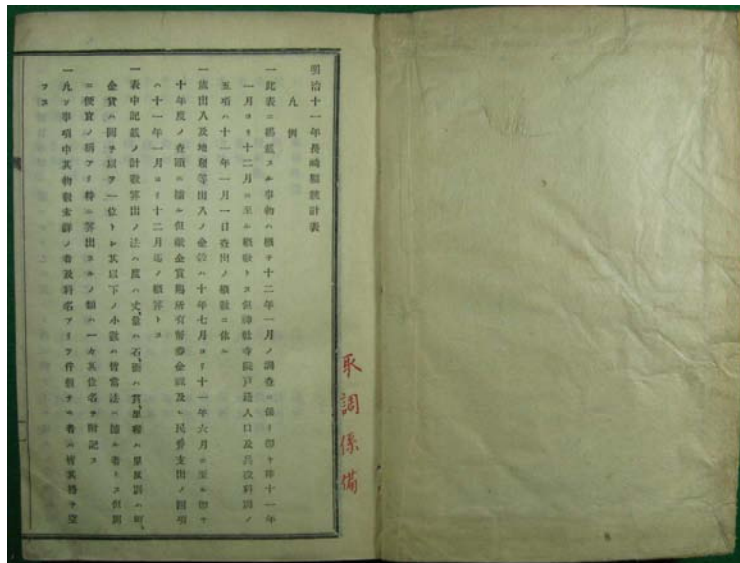 明治十一年長崎縣統計表
凡例
一此表ニ揭載スル事物ハ總テ十二年一月ノ調查ニ係リ卽チ昨十一年
一月ヨリ十二月ニ至ル總數トス但神社寺院戶籍人口及兵役科圖ノ
五項ハ十二年一月一日查出ノ總數ニ依ル
一歲出入及地種等出入ノ金數ハ十年七月ヨリ十一年六月ニ至ル卽チ
十年度ノ查頭ニ據ル但獻金賞賜所有金祿及ヒ民費支出ノ四項
ハ十一年一月ヨリ十二月迄ノ總算トス
一表中記載ノ計數算出ノ法ハ度ハ丈量ハ石衡ハ貫里程ハ里反別ハ町
金貨ハ圓ヲ以テ一位トシ其以下ノ小數ハ皆當法ニ據ル者トス但圓
ニ便宜ノ稱アリ特ニ算出スルノ類ハ一々其位名ヲ附記ス
一凡ソ事項中其物數未詳ノ者及科名アリテ件數ナキ者ハ皆其格ヲ空
フス
取調係備